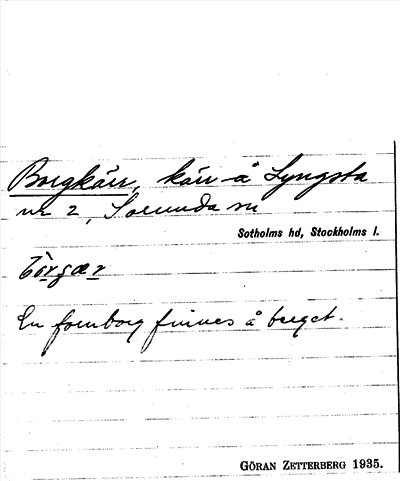 Borgkärr, kärr å Lyngsta
nr 2, Sorunda sn
Sotholms hd, Stockholms l.
En fornborg finnes å berget.
GÖRAN ZETTERBERG 1935.